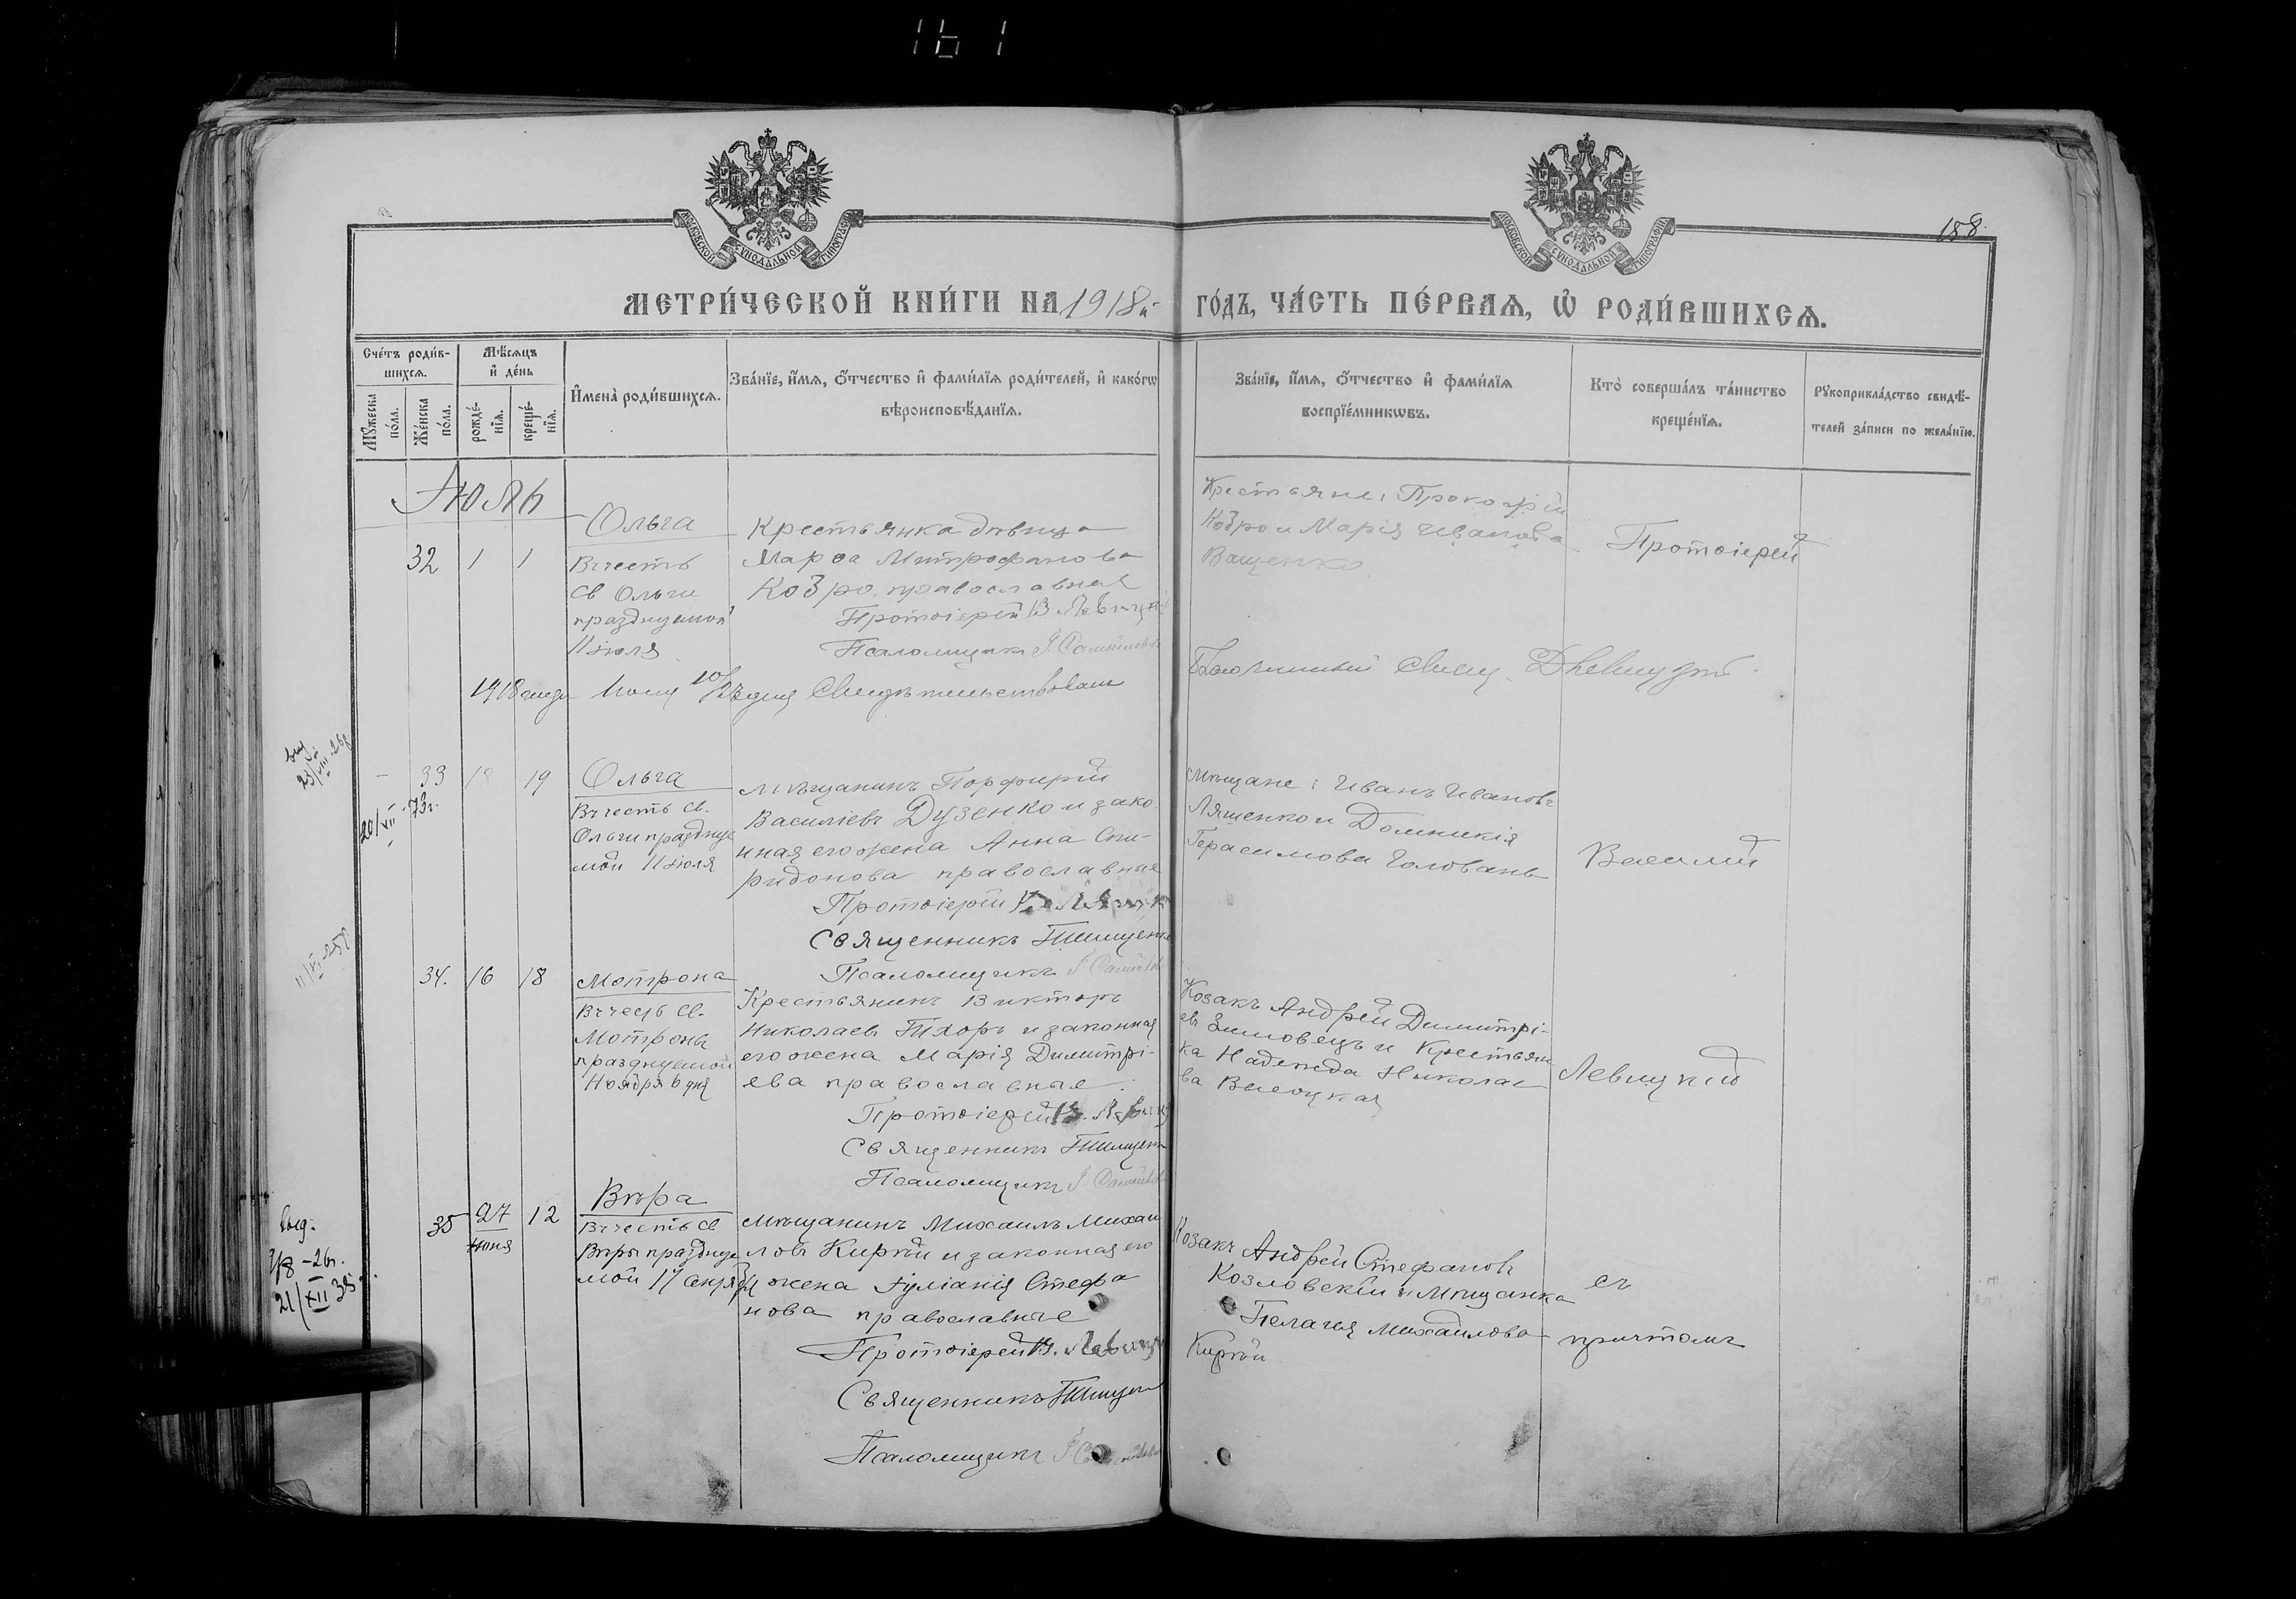 161
МОСКОВСКОЙ СѴНОДАЛЬНОЙ ТИПОГРАФІИ
МОСКОВСКОЙ СѴНОДАЛЬНОЙ ТИПОГРАФІИ
158
МЕТРИ́ЧЕСКОЙ КНИ́ГИ НА 1918й ГО́ДЪ, ЧА́СТЬ ПЕ́РВАѦ, Ѡ РОДИ́ВШИХСѦ.
Сче́тъ роди́в-
шихсѧ.
Мѣ́сѧцъ
и҆ де́нь
Мꙋжеска
по́ла.
Же́нска
по́ла.
рожде́-
нїѧ.
креще́-
нїѧ.
И҆мена̀ роди́вшихсѧ.
Зва́нїе, и҆́мѧ, ѻ҆́тчество и҆ фами́лїѧ роди́телей, и҆ како́гѡ
вѣроисповѣ́данїѧ.
Зва́нїе, и҆́мѧ, ѻ҆́тчество и҆ фами́лїѧ
воспрїе́мникѡвъ.
Кто̀ соверша́лъ та́инство
креще́нїѧ.
Рꙋкоприкла́дство свидѣ́-
телей за́писи по жела́нїю.
Іюль
32 1 1
Ольга
Въ честь
св Ольги
празднуемой
11 іюля
Крестьянка девица
Марѳа Митрофанова
Кобро, православная
Протоіерей В Левицкій
Псаломщикъ
Крестьяне: Прокофій
Кобро и Марія Иванова
Ващенко
Протоіерей
1918 года
33 18 19
Ольга
Въ честь св.
Ольги праздуе
мой 11 іюля
Мѣщанинъ Порфирій
Василіевъ Дузенко и зако
нная его жена Анна Спи-
ридонова православные
Протоіерей В Левицк
Священникъ Тимщенк
Псаломщикъ
Мѣщане: Иванъ Ивановъ
Ляшенко и Домникія
Герасимова Головань
Василій
20/XII 73г.
34. 16 18
Мотрона
Въ честь св.
Мотроны
празднуемой
Ноября 6 дня
Крестьянинъ Викторъ
Николаевъ Тхоръ и законная
его жена Марія Димитрі-
ева православные.
Протоіерей В. Левиц
Священникъ Тимщен
Псаломщикъ
Козакъ Андрей Димитрі-
евъ Зимовецъ и Крестьян
ка Надежда Николае
ва Высоцкая
Левицкій
35 27 12
іюня
Вѣра
Въ честь св
Вѣры праздуе
мой 17 сентяб
Мѣщанинъ Михаилъ Михаи
ловъ Кирѣй и законная его
жена Іуліанія Стефа
нова православные
Протоіерей В. Левицк
Священникъ Тимщен
Псаломщикъ
Козакъ Андрей Стефановъ
Козловскій и Мѣщанка
Пелагея Михаилова
Кирѣй
съ
причтомъ
выд.
3/8-26г.
21/XII 38